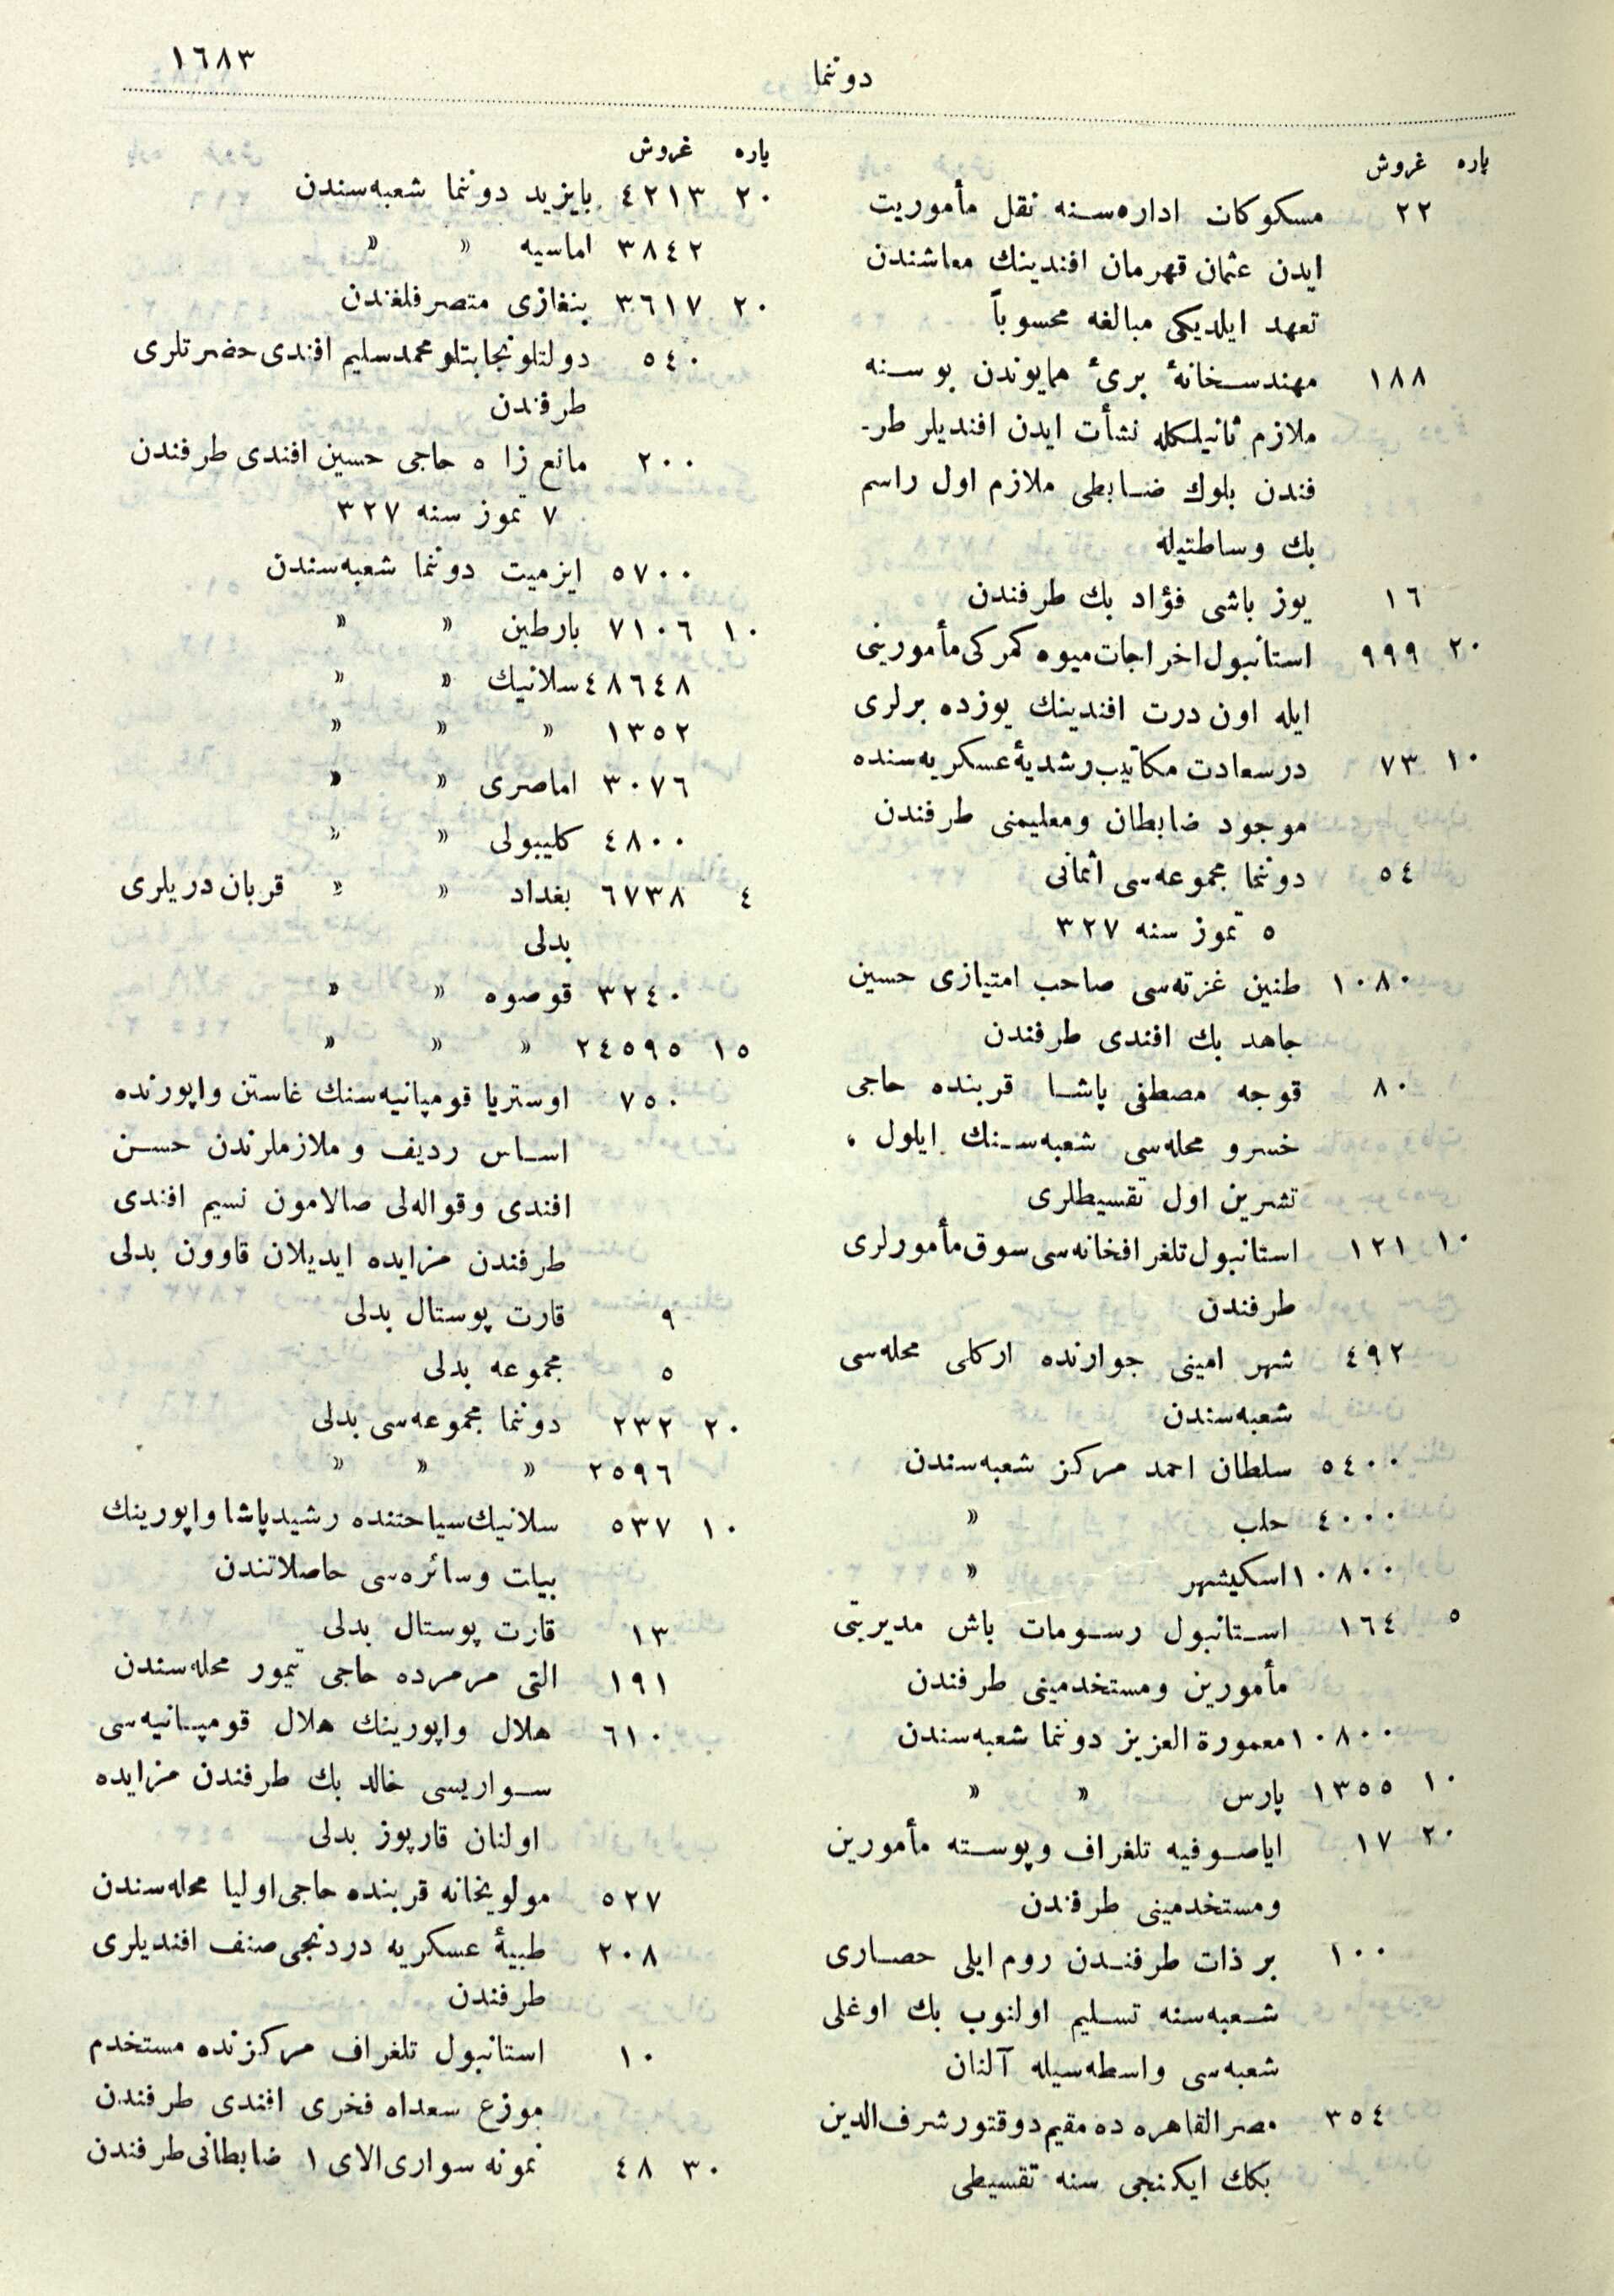 دوننما
١٦٨٣
پاره غروش
٢٢ مسكوكات اداره‌سنه نقل مأموريت
ايدن عثمان قهرمان افندينك معاشندن
تعهد ايلديكى مبالغه محسوباً
١٨٨ مهندسخانهٔ برىٔ همايوندن بو سنه
ملازم ثانيلكله نشأت ايدن افنديلر طر-
فندن بلوك ضابطى ملازم اول راسم
بك وساطتيله
١٦ يوز باشى فؤاد بك طرفندن
٢٠ ٩٩٩ استانبول اخراجات ميوه كمركى مأمورينى
ايله اون درت افندينك يوزده برلرى
١٠ ٧٣ درسعادت مكاتيب رشديهٔ عسكريه‌سنده
موجود ضابطان ومعليمنى طرفندن
٥٤ دوننما مجموعه‌سى اثمانى
٥ تموز سنه ٣٢٧
١٠٨٠ طنين غزته‌سى صاحب امتيازى حسين
جاهد بك افندى طرفندن
٨٠ قوجه مصطفى پاشا قربنده حاجى
خسرو محله‌سى شعبه‌سنك ايلول ،
تشرين اول تقسيطلرى
١٠ ١٢١ استانبول تلغرافخانه‌سى سوق مأمورلرى
طرفندن
٤٩٢ شهر امينى جوارنده اركلى محله‌سى
شعبه‌سندن
٥٤٠٠ سلطان احمد مركز شعبه‌سندن
٤٠٠٠ حلب »
١٠٨٠٠ اسكيشهر »
٥ ١٦٤ استانبول رسومات باش مديريتى
مأمورين ومستخدمينى طرفندن
١٠٨٠٠ معمورة العزيز دوننما شعبه‌سندن
١٠ ١٣٥٥ پارس » »
٢٠ ١٧ اياصوفيه تلغراف وپوسته مأمورين
ومستخدمينى طرفندن
١٠٠ بر ذات طرفندن روم ايلى حصارى
شعبه‌سنه تسليم اولنوب بك اوغلى
شعبه‌سى واسطه‌سيله آلنان
٣٥٤ مصر القاهره ده مقيم دوقتور شرف الدين
بكك ايكنجى سنه تقسيطى
پاره غروش
٢٠ ٤٢١٣ بايزيد دوننما شعبه‌سندن
٣٨٤٢ اماسيه » »
٢٠ ٣٦١٧ بنغازى متصرفلغندن
٥٤٠ دولتلو نجابتلو محمد سليم افندى حضرتلرى
طرفندن
٢٠٠ مانع زا ه حاجى حسين افندى طرفندن
٧ تموز سنه ٣٢٧
٥٧٠٠ ايزميت دوننما شعبه‌سندن
١٠ ٧١٠٦ بارطين » »
٤٨٦٤٨ سلانيك » »
١٣٥٢ » » »
٣٠٧٦ اماصرى » »
٤٨٠٠ كليبولى » »
٤ ٦٧٣٨ بغداد » » قربان دريلرى
بدلى
٣٢٤٠ قوصوه » »
١٥ ٢٤٥٩٥ » » »
٧٥٠ اوستريا قومپانيه‌سنك غاستن واپورنده
اساس رديف و ملازملرندن حسن
افندى وقواله‌لى صالامون نسيم افندى
طرفندن مزايده ايديلان قاوون بدلى
٩ قارت پوستال بدلى
٥ مجموعه بدلى
٢٠ ٢٣٢ دوننما مجموعه‌سى بدلى
٢٥٩٦ » » »
١٠ ٥٣٧ سلانيك سياحتنده رشيد پاشا واپورينك
بيات وسائره‌سى حاصلاتندن
١٣ قارت پوستال بدلى
١٩١ التى مرمرده حاجى تيمور محله‌سندن
٦١٠ هلال واپورينك هلال قومپانيه‌سى
سواريسى خالد بك طرفندن مزايده
اولنان قارپوز بدلى
٥٢٧ مولويخانه قربنده حاجى اوليا محله‌سندن
٢٠٨ طبيهٔ عسكريه دردنجى صنف افنديلرى
طرفندن
١٠ استانبول تلغراف مركزنده مستخدم
موزع سعداه فخرى افندى طرفندن
٣٠ ٤٨ نمونه سوارى الاى ١ ضابطانى طرفندن